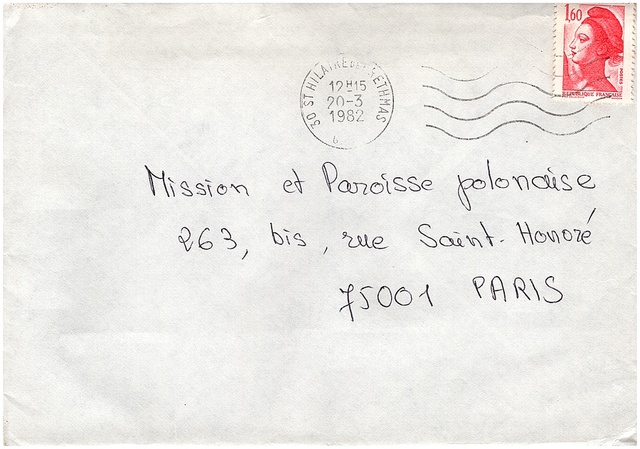 1,60
POSTES
REPUBLIQUE FRANÇAISE
30 ST HILAIRE DE BRETHMAS
12H15
20-3
1982
Mission et Paroisse polonaise
263, bis, rue Saint-Honoré
75001 PARIS